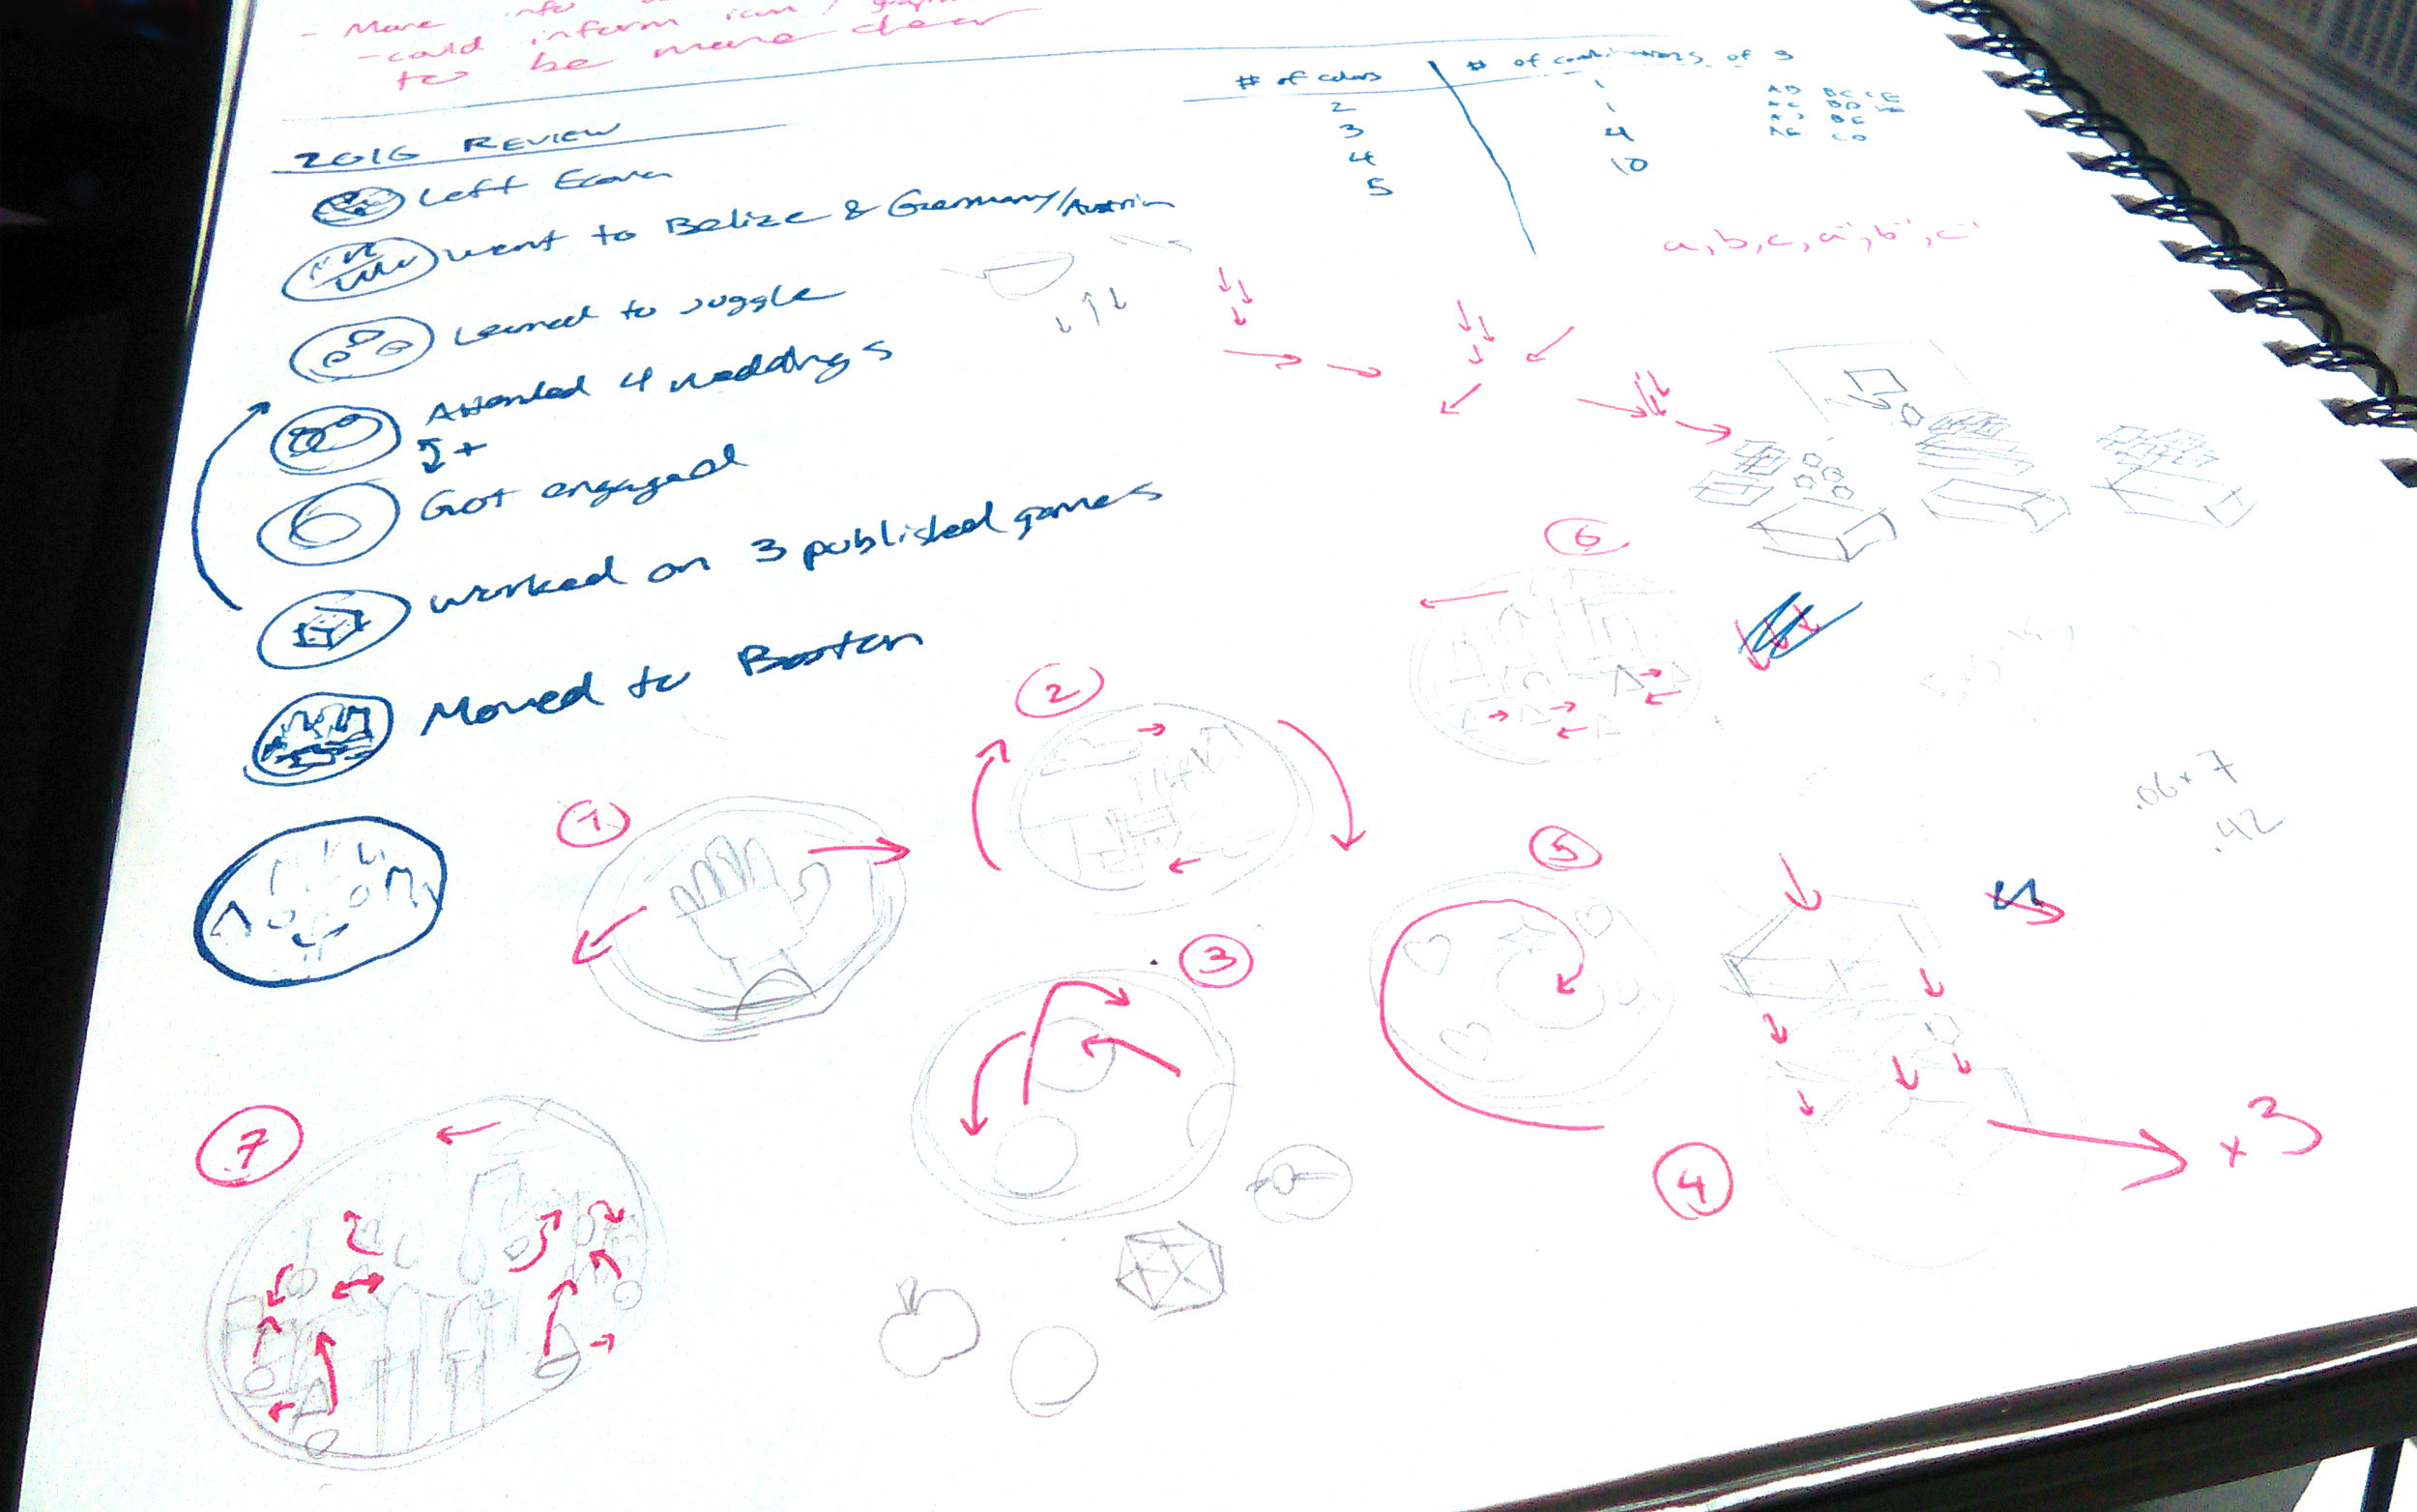 - More info
- could inform icon /
to be more clear
# of colors # of combinations of 3
2 1
3 1
4 4
5 10
AB BC CE
AC BD
AD BE
AE CD
a, b, c, a-, b-, c-
2016 REVIEW
Left
Went to Belize & Germany/Austria
Learned to juggle
Attended 4 weddings
Got engaged
Worked on 3 published games
Moved to Boston
6
2
1
.06 x 7
.42
5
3
7
4
x 3